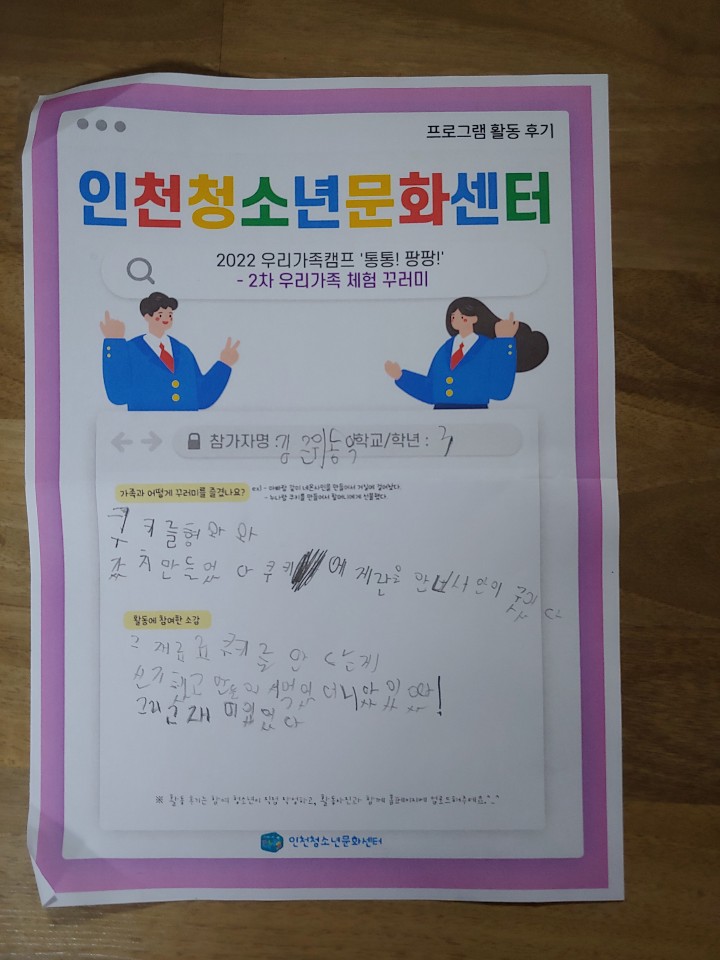 프로그램 활동 후기
인천청소년문화센터
2022 우리가족캠프 '통통! 팡팡!'
- 2차 우리가족 체험 꾸러미
참가자명 : 학교/학년 : 3
가족과 어떻게 꾸러미를 즐겼나요? ex) - 아빠랑 같이 네온사인을 만들어서 거실에 걸어놨다.
- 누나랑 쿠키를 만들어서 할머니에게 선물했다.
쿠키를형와 와
만들었다 쿠키에 계란을 안 좋았다
활동에 참여한 소감
그 재료로 쿠키를 만
신기했고 만들어서먹었더니맛있었!
그리고재미있었다
※ 활동 후기는 함께 청소년이 직접 작성하고, 활동사진과 함께 홈페이지에 업로드해주세요.^_^
인천청소년문화센터